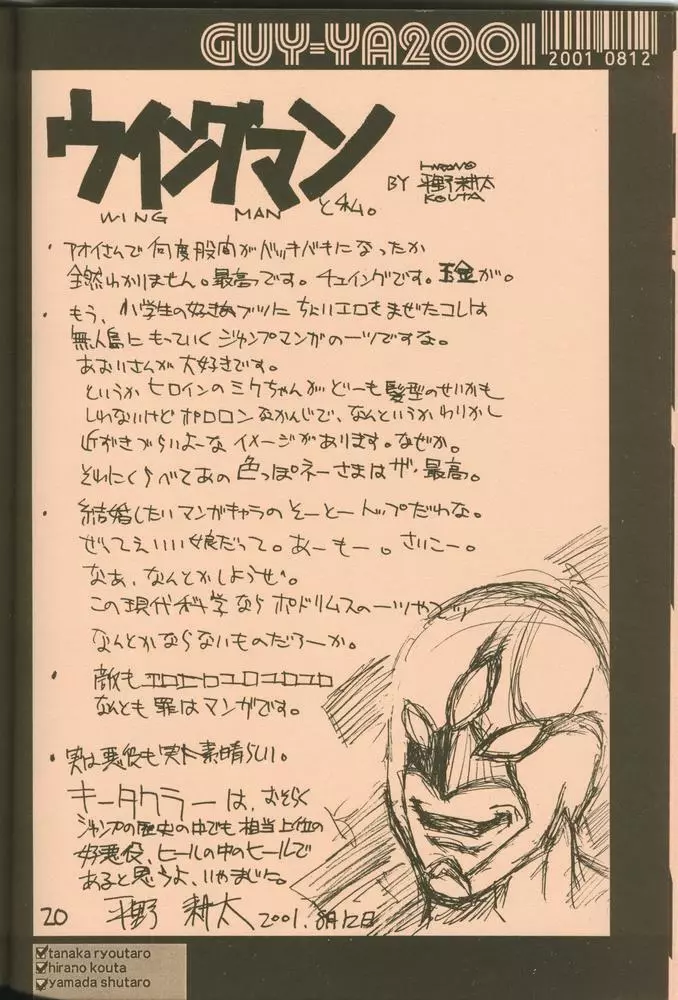 GUY-YA2001
2001 0812
ウイングマン
WING MAN と私。
BY 平野耕太
HIRANO
KOUTA
・アオイさんで何度股間がバッキバキになったか
全然わかりません。最高っです。チュイングです。玉金が。
・もう、小学生の好きなブツに ちょいエロをまぜたコレは
無人島にもっていくジャンプマンガの一ツですな。
あおいさんが大好きです。
というかヒロインのミクちゃんがどーも髪型のせいかも
しれないけどポロロンなかんじで、なんというかわりかし
近づきづらいよーなイメージがあります。なぜか。
それにくらべてあの色っぽネーさまはザ・最高。
・結婚したいマンガキャラのそーとートップだわな。
ぜってえいい娘だって。あーもー。さいこー。
なあ、なんとかしようぜ。
この現代科学ならポドリムスの一ツやで
なんとかならないものだろーか。
・敵もエロエロユロユロユロ
なんとも罪はマンガです。
・実は悪役も実に素晴らしい。
キータクラーは、おそらく
ジャンプの歴史の中でも相当上位の
好悪役、ヒールの中のヒールで
あると思うよ、いやまじに。
平野 耕太 2001.8月12日
20
tanaka ryoutaro
hirano kouta
yamada shutaro